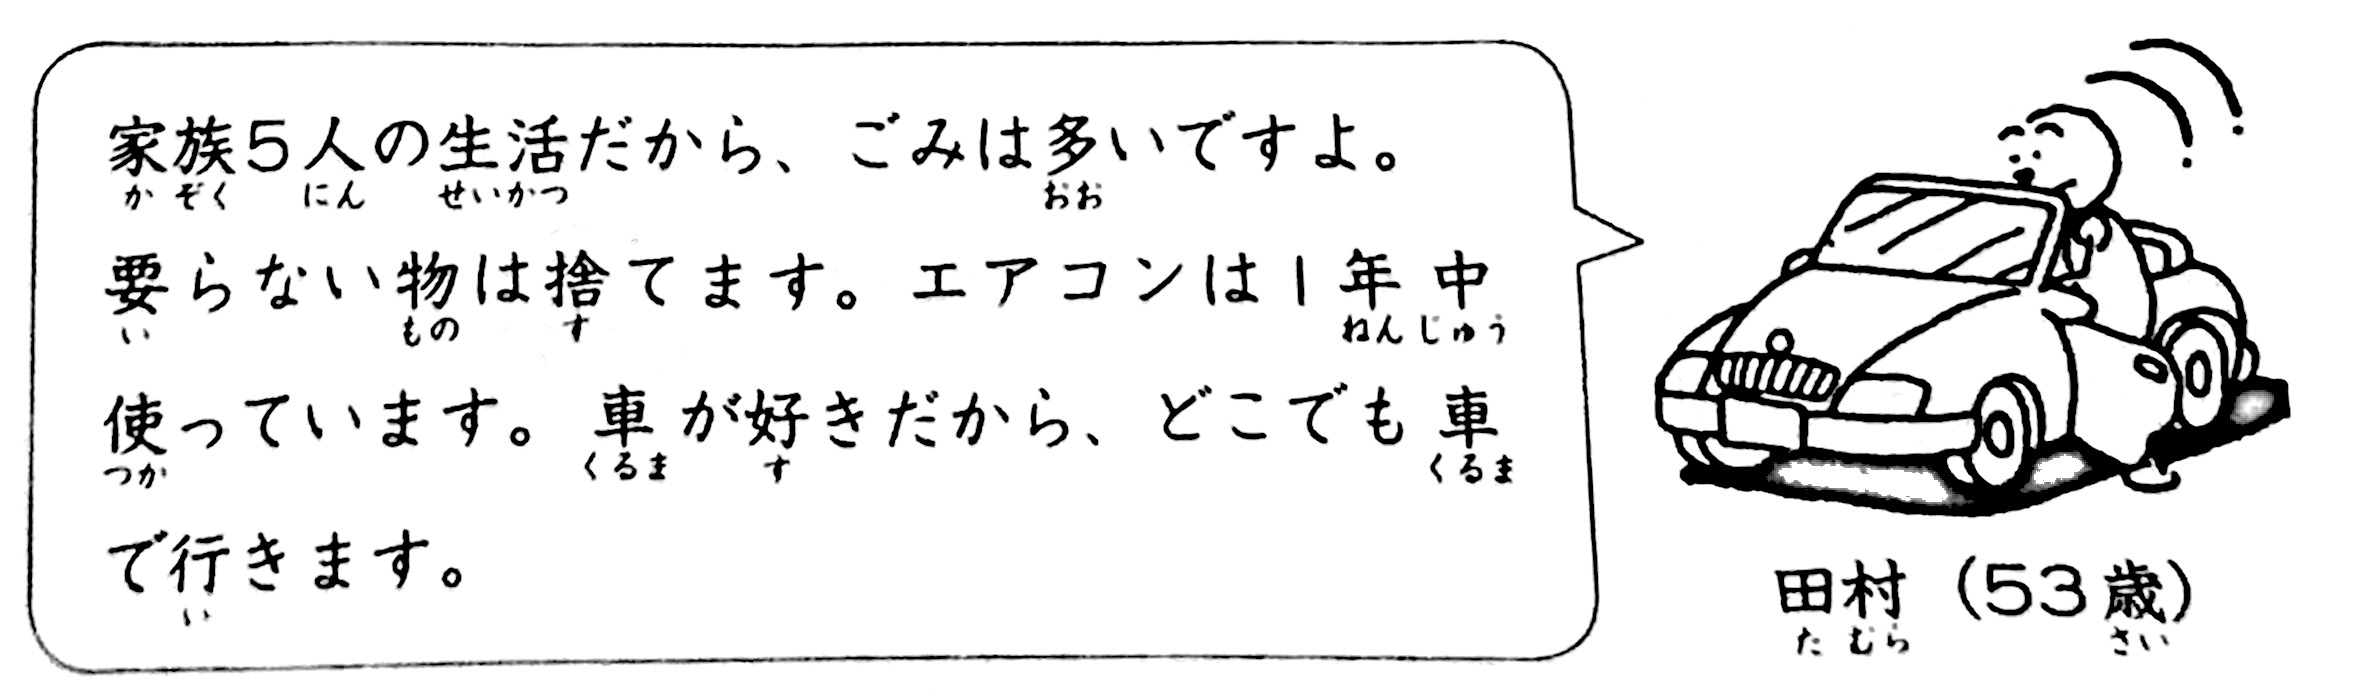 家族5人の生活だから、ごみは多いですよ。
か ぞく にん せいかつ おお
要らない物は捨てます。エアコンは1年中
い もの す ねん じゅう
使っています。車が好きだから、どこでも車
つか くるま す くるま
で行きます。
い
田村(53歳)
た むら さい